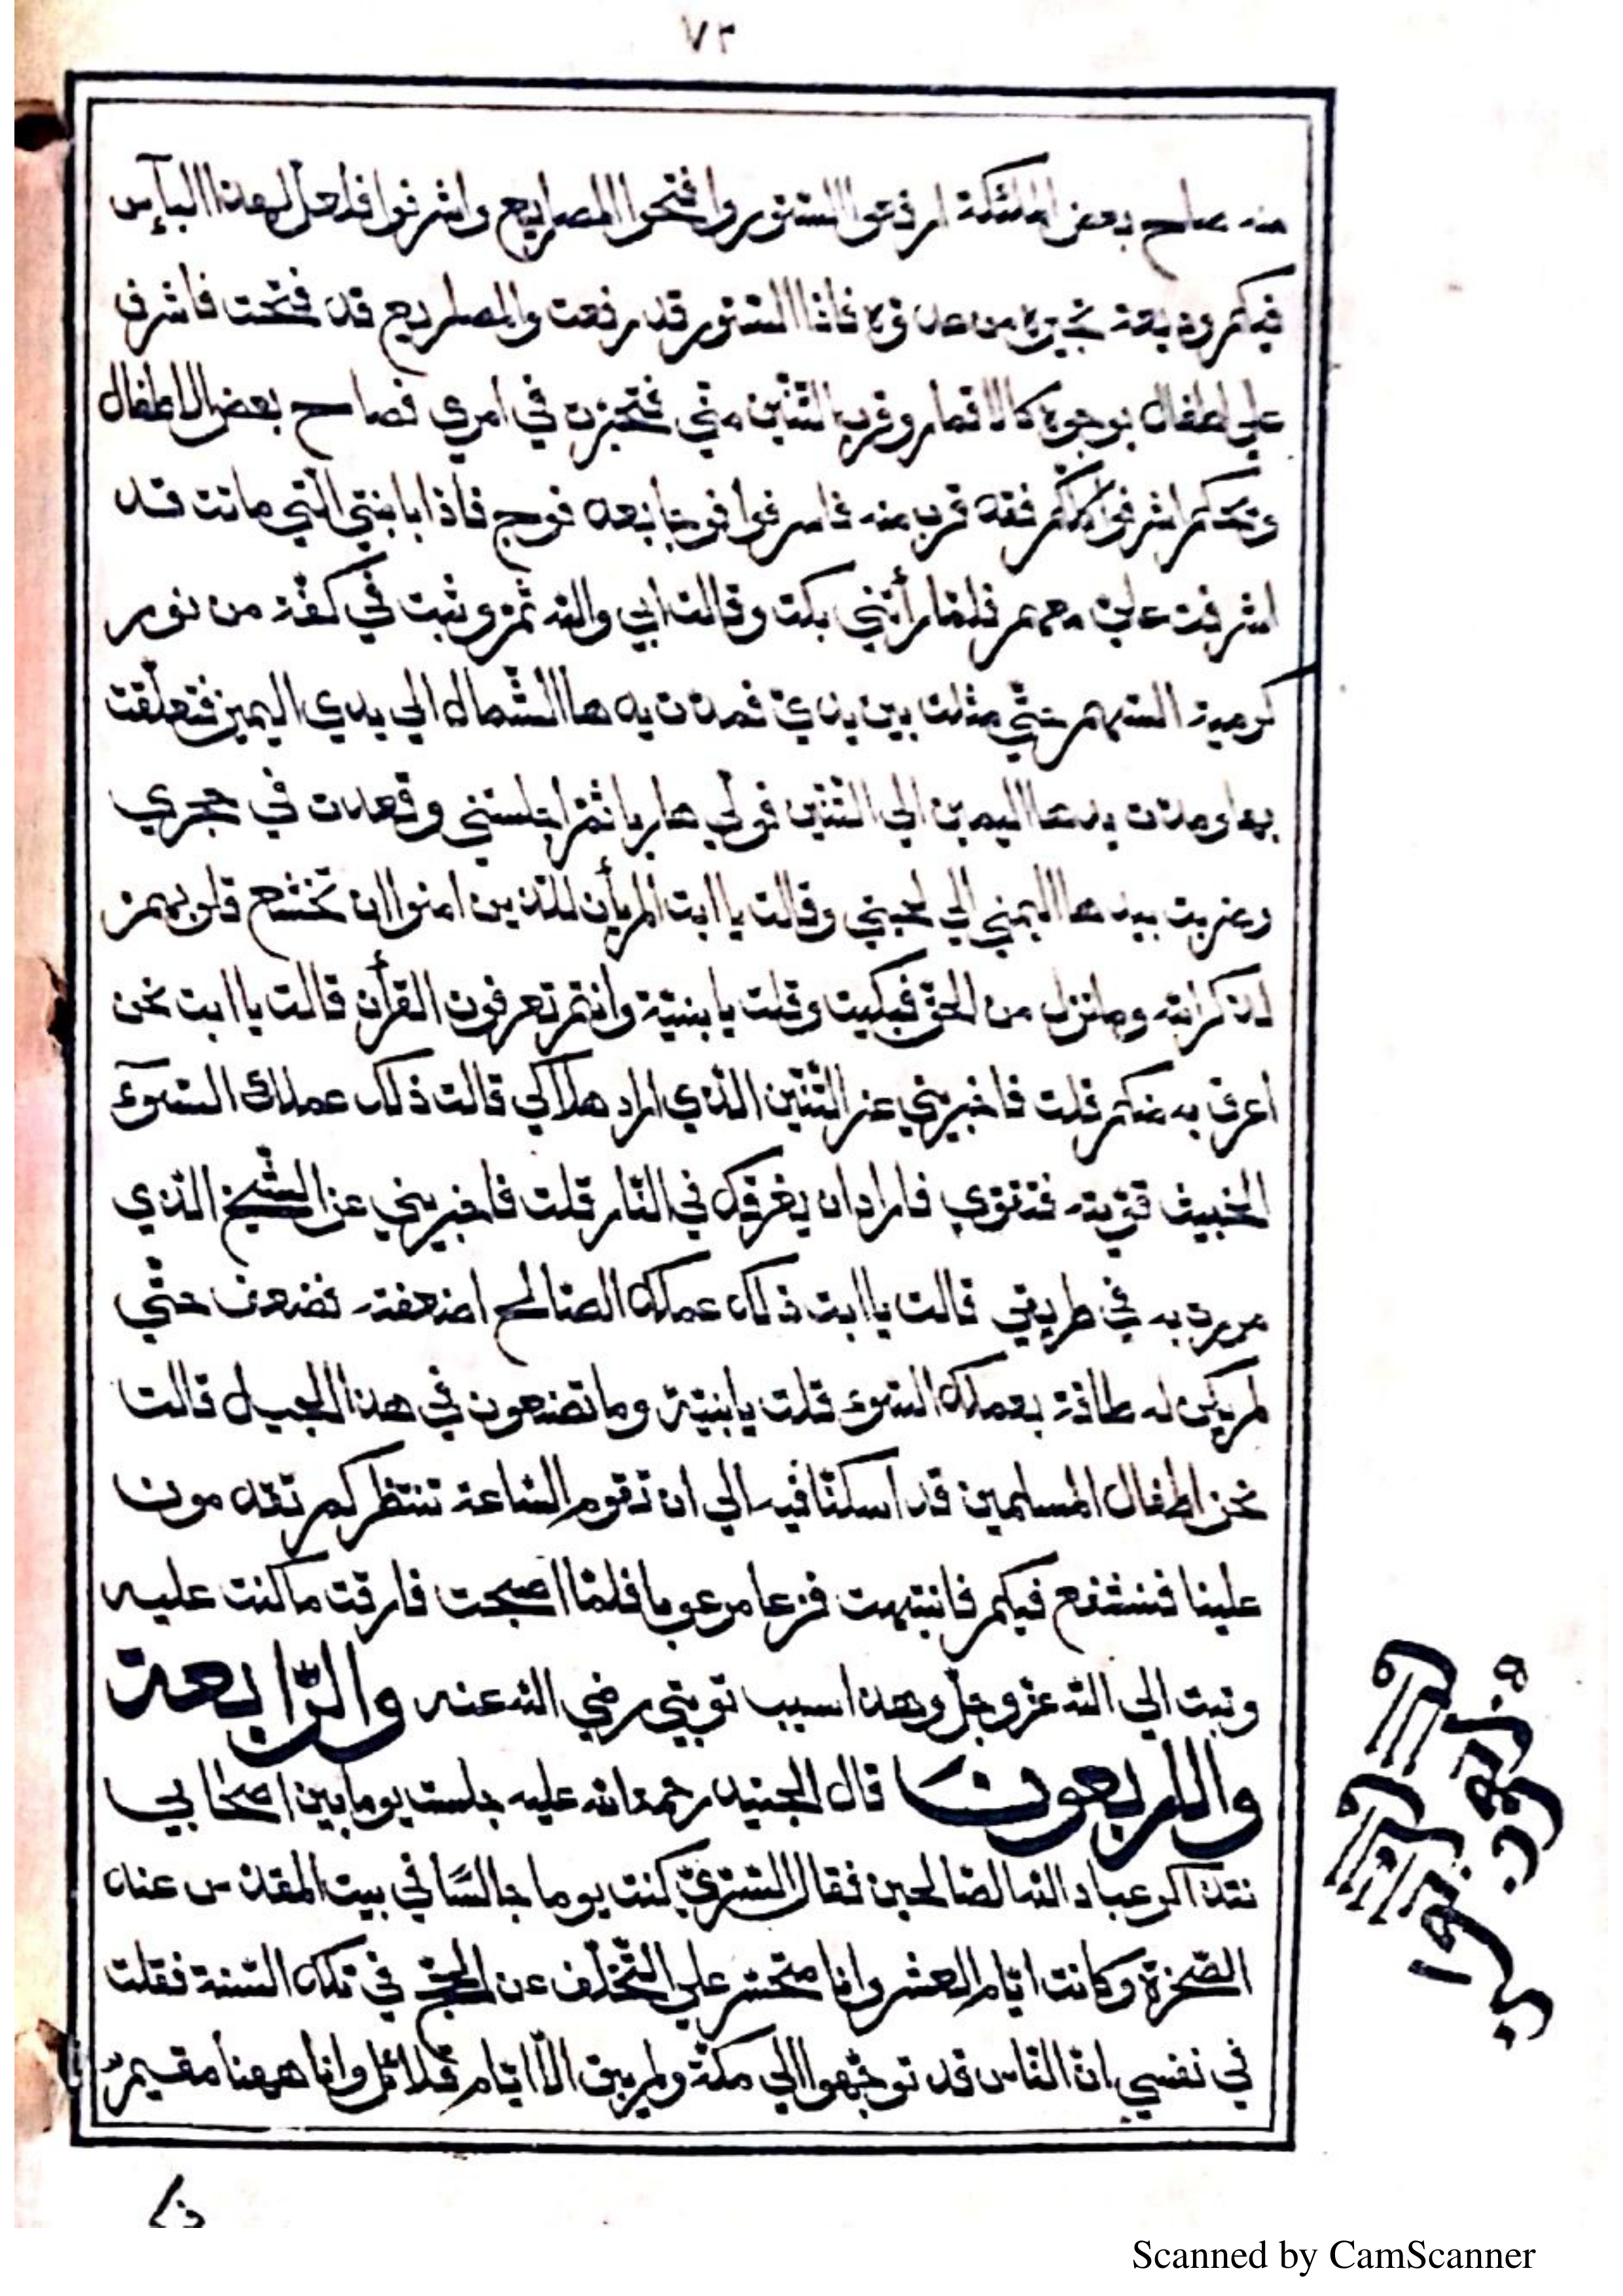 ٧٣
منه صاح بعض الملئكة ارفعوا الستور وافتحوا المصاريع واشرفوا فلعل لهذا البآئس
فيكم وديعة تجيره من عدوه فاذا الستور قد رفعت والمصاريع قد فتحت فاشرف
علي اطفال بوجوه كالاقمار وقرب التنين مني فتحيرت في امري فصاح بعض الاطفال
ويحكم اشرفوا كلكم فقد قرب منه فاشرفوا فوجا بعد فوج فاذا بابنتي التي ماتت قد
اشرفت علي معهم فلما رأتني بكت وقالت ابي والله ثم وثبت في كفة من نور
كرمية السهم حتي مثلت بين يدي فمدت يدها الشمال الي يدي اليمين فتعلقت
بها ومدت يدها اليمين الي التنين فولي هاربا ثم اجلستني وقعدت في حجري
وضربت بيدها اليمني الي لحيتي وقالت يا ابت الم يأن للذين امنوا ان تخشع قلوبهم
لذكر الله وما نزل من الحق فبكيت وقلت يا بنية وانتم تعرفون القرأن قالت يا ابت نحن
أعرف به منكم قلت فاخبريني عن التنين الذي اراد هلاكي قالت ذلك عملك السوء
الخبيث قويته فتقوي فاراد ان يغرقك في النار قلت فاخبريني عن الشيخ الذي
مررت به في طريقي قالت يا ابت ذلك عملك الصالح اضعفته فضعف حتي
لم يكن له طاقة بعملك السوء قلت يا بنية وما تصنعون في هذا الجبل قالت
نحن اطفال المسلمين قد اسكنا فيه الي ان تقوم الساعة ننتظركم تقدمون
علينا فنشفع فيكم فانتبهت فزعا مرعوبا فلما اصبحت فارقت ما كنت عليه
وتبت الي الله عز وجل وهذا سبب توبتي رضي الله عنه والرابعة
والاربعون قال الجنيد رحمة الله عليه جلست يوما بين اصحابي
نتذاكر عباد الله الصالحين فقال السري كنت يوما جالسا في بيت المقدس عند
الصخرة وكانت ايام العشر وانا متحسر علي التخلف عن الحج في تلك السنة فقلت
في نفسي ان الناس قد توجهوا الي مكة ولم يبق الا ايام قلائل وانا ههنا مقيم